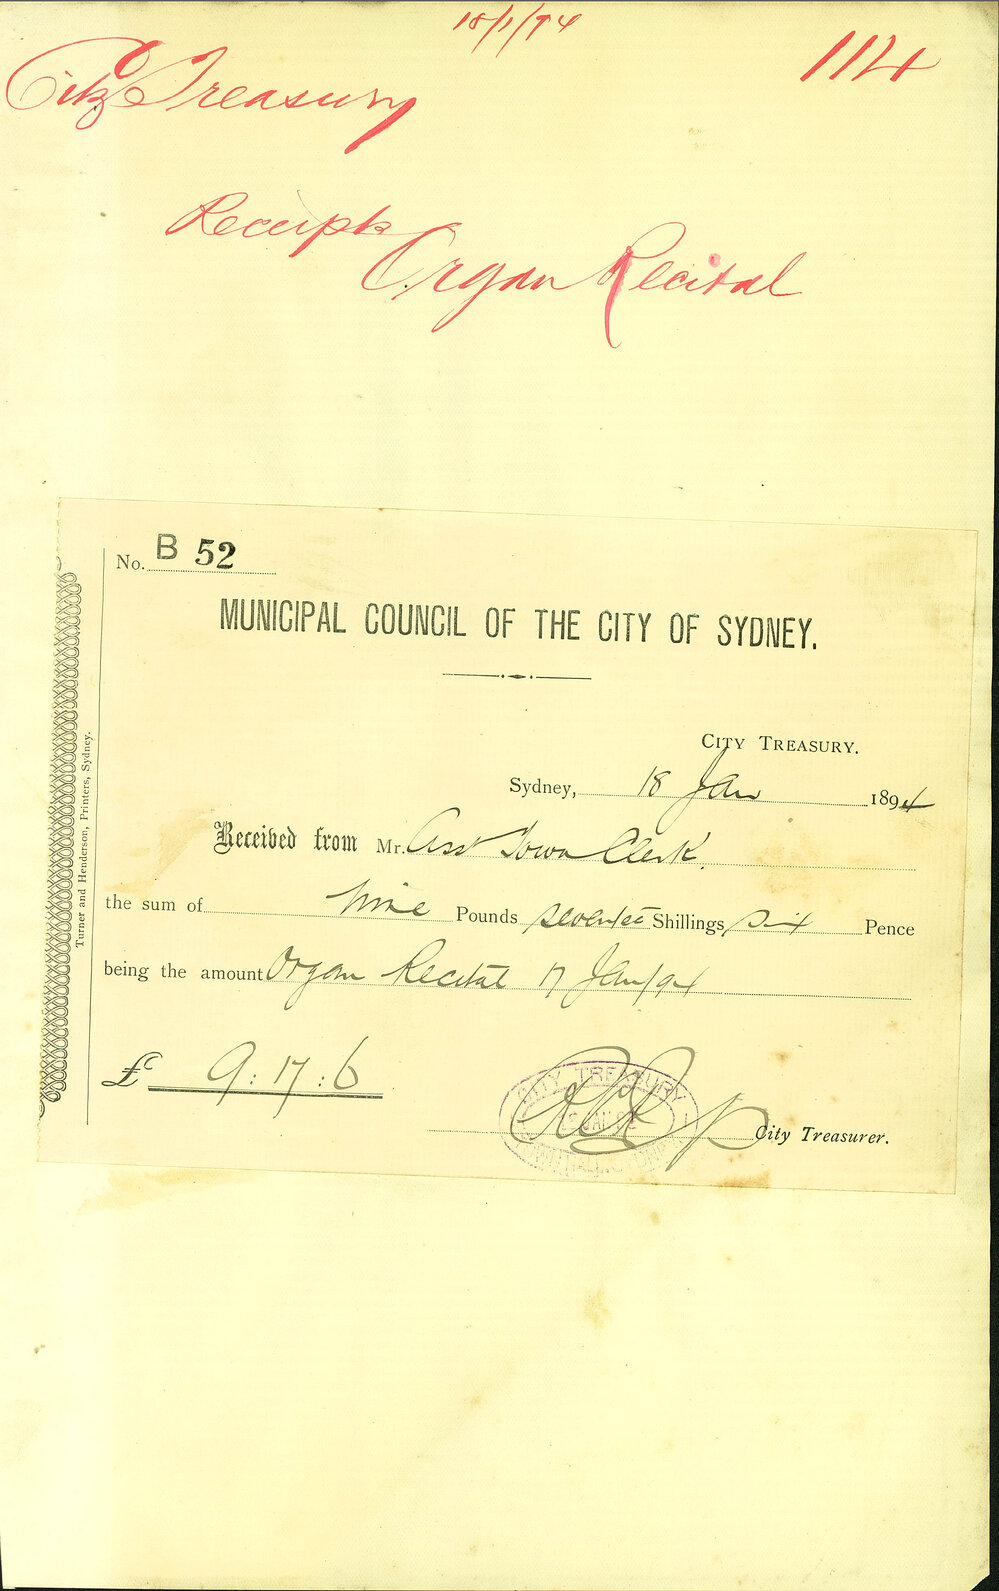 18/1/94
114
City Treasury
Receipts
Organ Recital
No. B 52
MUNICIPAL COUNCIL OF THE CITY OF SYDNEY.
CITY TREASURY.
Sydney, 18 Jan 1894
Received from Mr. Asst Town Clerk.
the sum of Nine Pounds Seventeen Shillings Six Pence
being the amount Organ Recital 17 Jan/94
£ 9:17:6
CITY TREASURY
City Treasurer.
Turner and Henderson, Printers, Sydney.